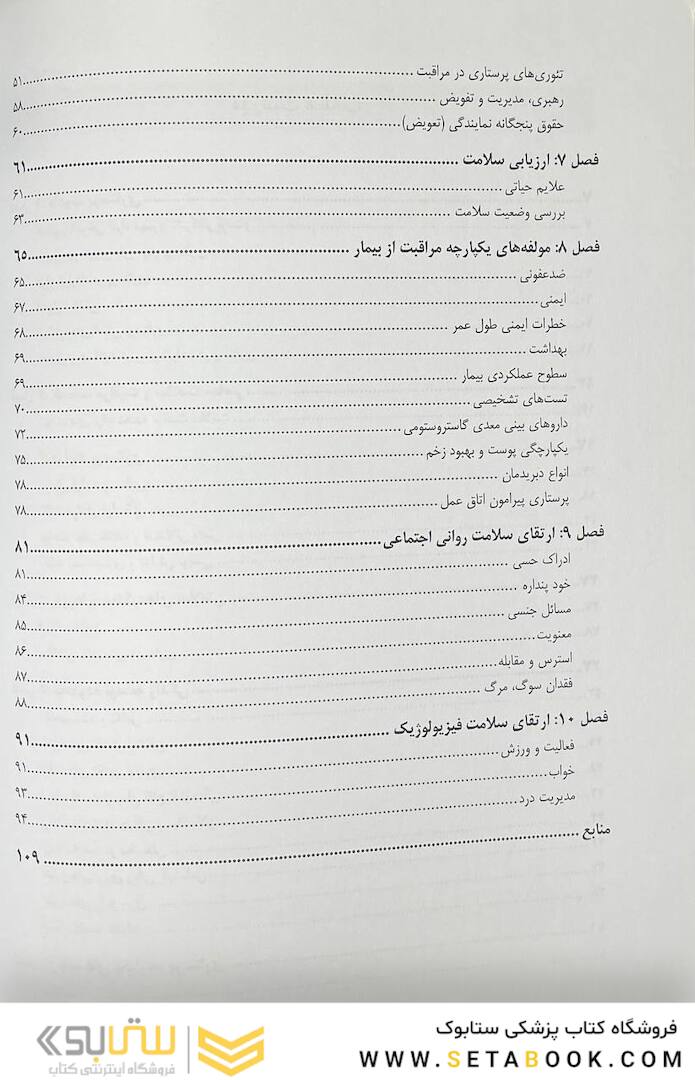 تئوری‌های پرستاری در مراقبت ........ ۵۱
رهبری، مدیریت و تفویض ........ ۵۸
حقوق پنجگانه نمایندگی (تعویض) ........ ۶۰
فصل ۷: ارزیابی سلامت ........ ۶۱
علایم حیاتی ........ ۶۱
بررسی وضعیت سلامت ........ ۶۳
فصل ۸: مولفه‌های یکپارچه مراقبت از بیمار ........ ۶۵
ضدعفونی ........ ۶۵
ایمنی ........ ۶۷
خطرات ایمنی طول عمر ........ ۶۸
بهداشت ........ ۶۹
سطوح عملکردی بیمار ........ ۶۹
تست‌های تشخیصی ........ ۷۰
داروهای بینی معدی گاستروستومی ........ ۷۲
یکپارچگی پوست و بهبود زخم ........ ۷۵
انواع دبریدمان ........ ۷۸
پرستاری پیرامون اتاق عمل ........ ۷۸
فصل ۹: ارتقای سلامت روانی اجتماعی ........ ۸۱
ادراک حسی ........ ۸۱
خود پنداره ........ ۸۴
مسائل جنسی ........ ۸۵
معنویت ........ ۸۶
استرس و مقابله ........ ۸۷
فقدان سوگ، مرگ ........ ۸۸
فصل ۱۰: ارتقای سلامت فیزیولوژیک ........ ۹۱
فعالیت و ورزش ........ ۹۱
خواب ........ ۹۳
مدیریت درد ........ ۹۴
منابع ........ ۱۰۹
فروشگاه کتاب پزشکی ستابوک
WWW.SETABOOK.COM
ستابوک
فروشگاه اینترنتی کتاب